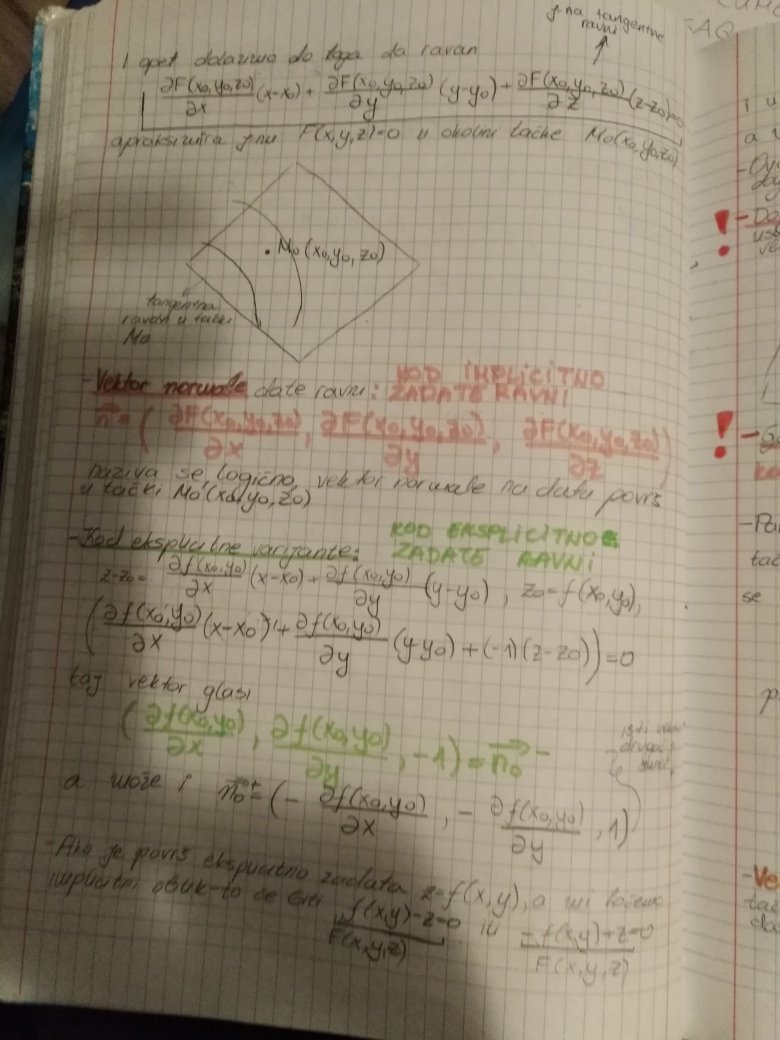 j-na tangentne
ravni
I opet dolazimo do toga da ravan
∂F(x0,y0,z0)/∂x (x-x0) + ∂F(x0,y0,z0)/∂y (y-y0) + ∂F(x0,y0,z0)/∂z (z-z0)=0
apraksimira j-nu F(x,y,z)=0 u okolini tačke M0(x0,y0,z0)
M0(x0,y0,z0)
tangentna
ravan u tački
M0
-Vektor normale date ravni: KOD IMPLICITNO
ZADATE RAVNI
n = (∂F(x0,y0,z0)/∂x, ∂F(x0,y0,z0)/∂y, ∂F(x0,y0,z0)/∂z)
naziva se, logično, vektor normale na datu površ
u tački M0(x0,y0,z0)
-Kod eksplicitne varijante: KOD EKSPLICITNO
ZADATE RAVNI
z-z0 = ∂f(x0,y0)/∂x (x-x0) + ∂f(x0,y0)/∂y (y-y0), z0=f(x0,y0),
(∂f(x0,y0)/∂x (x-x0) + ∂f(x0,y0)/∂y (y-y0) + (-1)(z-z0))=0
taj vektor glasi
(∂f(x0,y0)/∂x, ∂f(x0,y0)/∂y, -1) = n0⁻
a može i n0⁺ = (- ∂f(x0,y0)/∂x, - ∂f(x0,y0)/∂y, 1)
-Ako je površ eksplicitno zadata z=f(x,y), a mi hoćemo
implicitni oblik-to će biti f(x,y)-z=0 ili -f(x,y)+z=0
F(x,y,z) F(x,y,z)